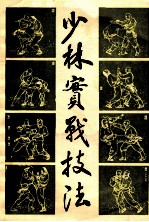 少林實戰技法